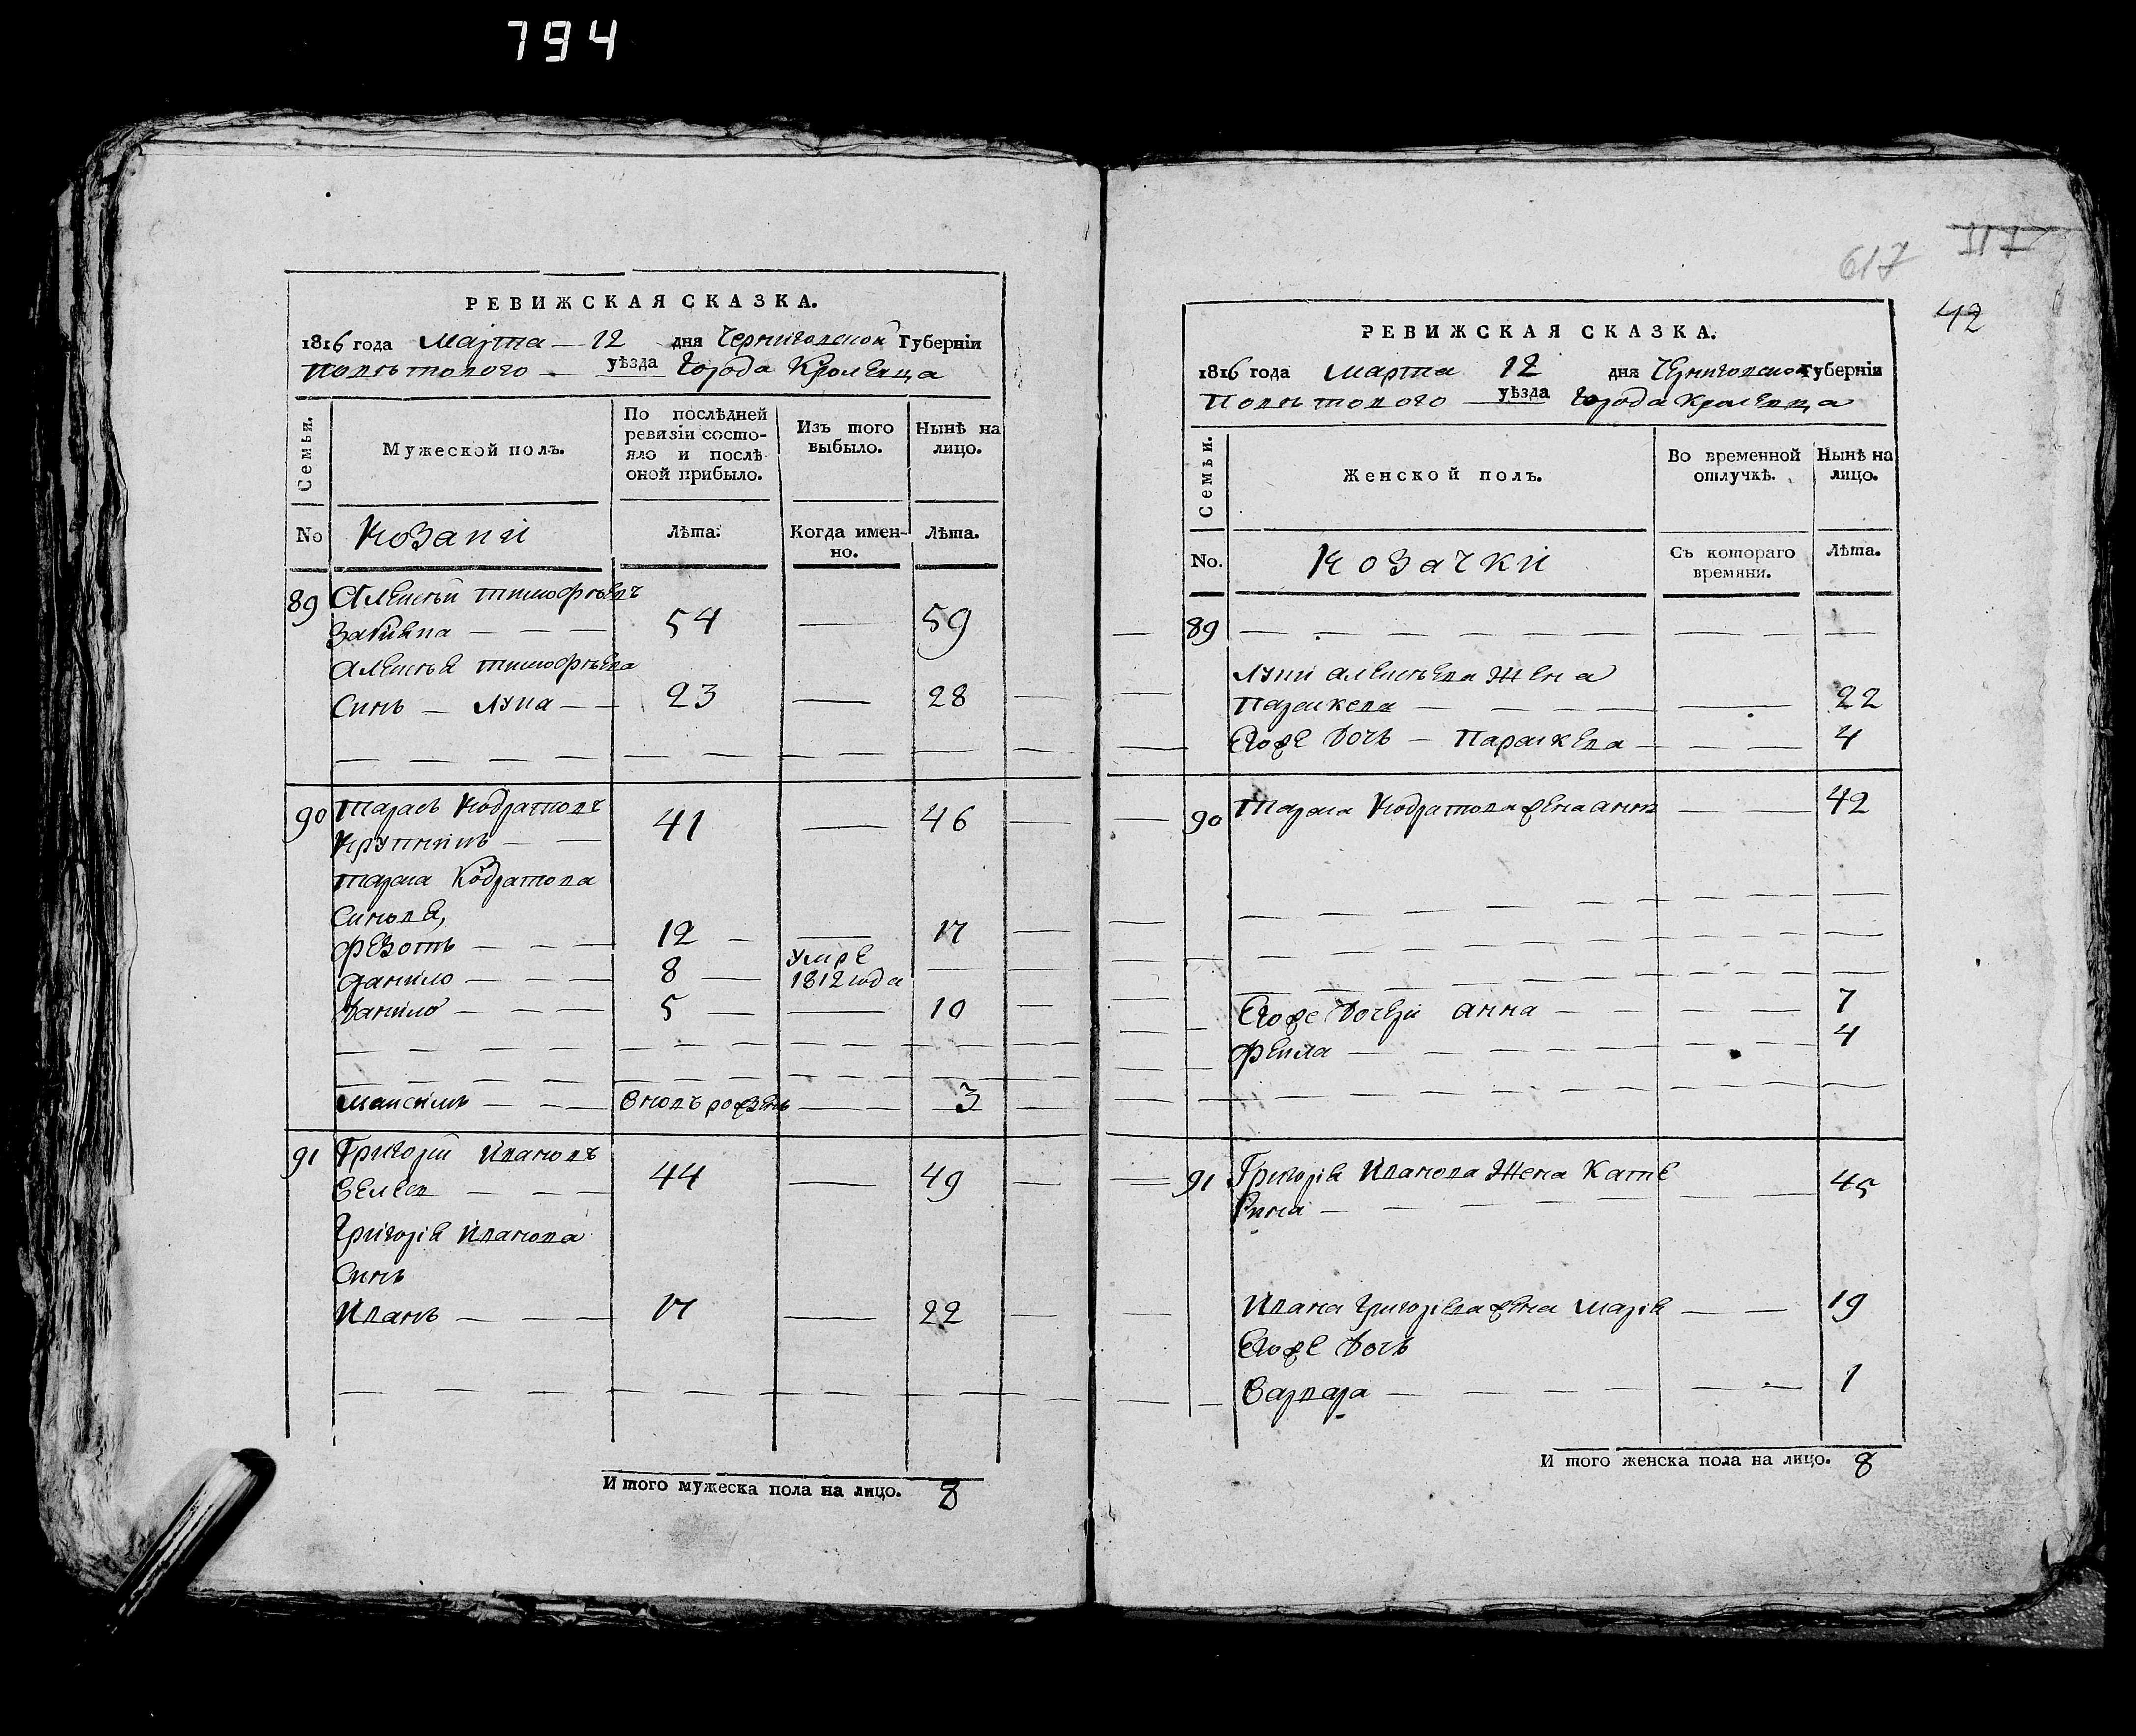 794
РЕВИЖСКАЯ СКАЗКА.
1816 года Марта — 12 дня Черниговской Губерніи
Повѣтового — уѣзда Города Кролевца
Семьи.
Мужеской полъ.
По послѣдней ревизіи состояло и послѣ оной прибыло.
Изъ того выбыло.
Нынѣ на лицо.
No
Козаки
Лѣта.
Когда именно.
Лѣта.
89 Алексѣй Тимофѣевъ
54 — 59
Алексѣя Тимофѣева
Синъ — Лука — 23 — 28
90 Тарасъ Кодратовъ
41 — 46
Тараса Кодратова
Синовя,
Федотъ — 12 — 17
Данило — 8 — Умре 1812 года
Данило — 5 — 10
Максимъ — вновъ рожденъ — 3
91 Григорій Ивановъ
44 — 49
Григорія Иванова
Синъ
Иванъ — 17 — 22
И того мужеска пола на лицо. 8
617
42
РЕВИЖСКАЯ СКАЗКА.
1816 года Марта 12 дня Черниговской Губерніи
Повѣтового уѣзда Города Кролевца
Семьи.
Женской полъ.
Во временной отлучкѣ.
Нынѣ на лицо.
No.
Козачки
Съ котораго времяни.
Лѣта.
89
Луки Алексѣева Жена
Параскева — 22
Егоже дочь — Параскева — 4
90 Тараса Кодратова жена Анна 42
Егоже дочери Анна — 7
Фекла — 4
91 Григорія Иванова Жена Кате
рина — 45
Ивана Григоріева жена Марія — 19
Егоже дочь
Варвара — 1
И того женска пола на лицо. 8